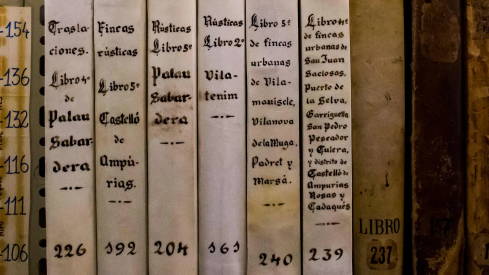 -154
-136
-132
-116
-111
-106
Trasla
ciones.
Libro 4º
de
Palau
Sabar-
dera
226
Fincas
rústicas
Libro 5º
Castelló
de
Ampú-
rias.
192
Rústicas
Libro 5º
Palau
Sabar-
dera
204
Rústicas
Libro 2º
Vila-
tenim
161
Libro 5º
de fincas
urbanas
de Vila-
maniscle,
Vilanova
de la Muga,
Padret y
Marsá.
240
Libro 4º
de fincas
urbanas de
San Juan
Saclosas,
Puerto de
la Selva,
Garriguella
San Pedro
Pescador
y Culera,
y distrito de
Castelló de
Ampurias
Rosas y
Cadaqués
239
LIBRO
237